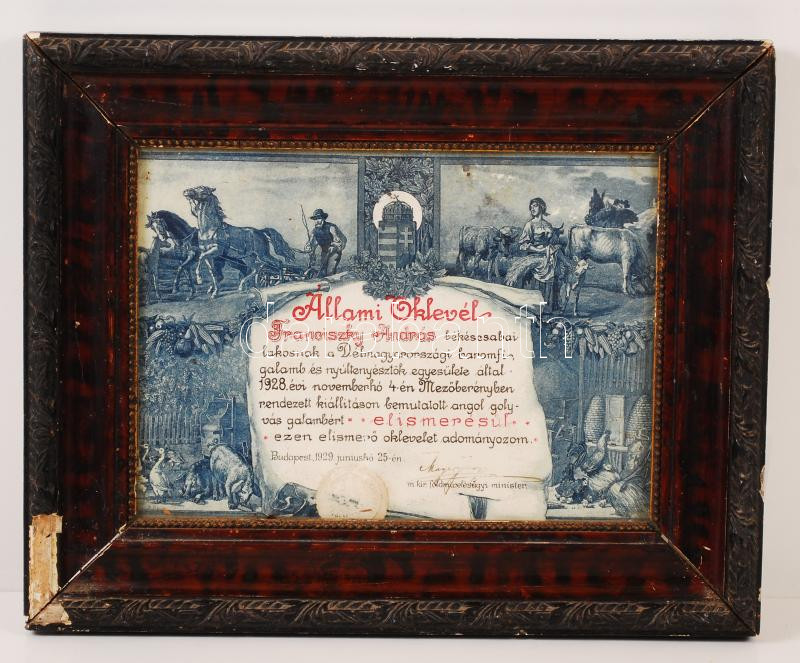 Állami Oklevél
Franciszky András békéscsabai
lakosnak a Délmagyarországi baromfi-,
galamb és nyúltenyésztők egyesülete által
1928. évi november hó 4-én Mezőberényben
rendezett kiállításon bemutatott angol goly-
vás galambért elismerésül
ezen elismerő oklevelet adományozom.
Budapest, 1929. junius hó 25-én.
m. kir. földmivelésügyi minister.